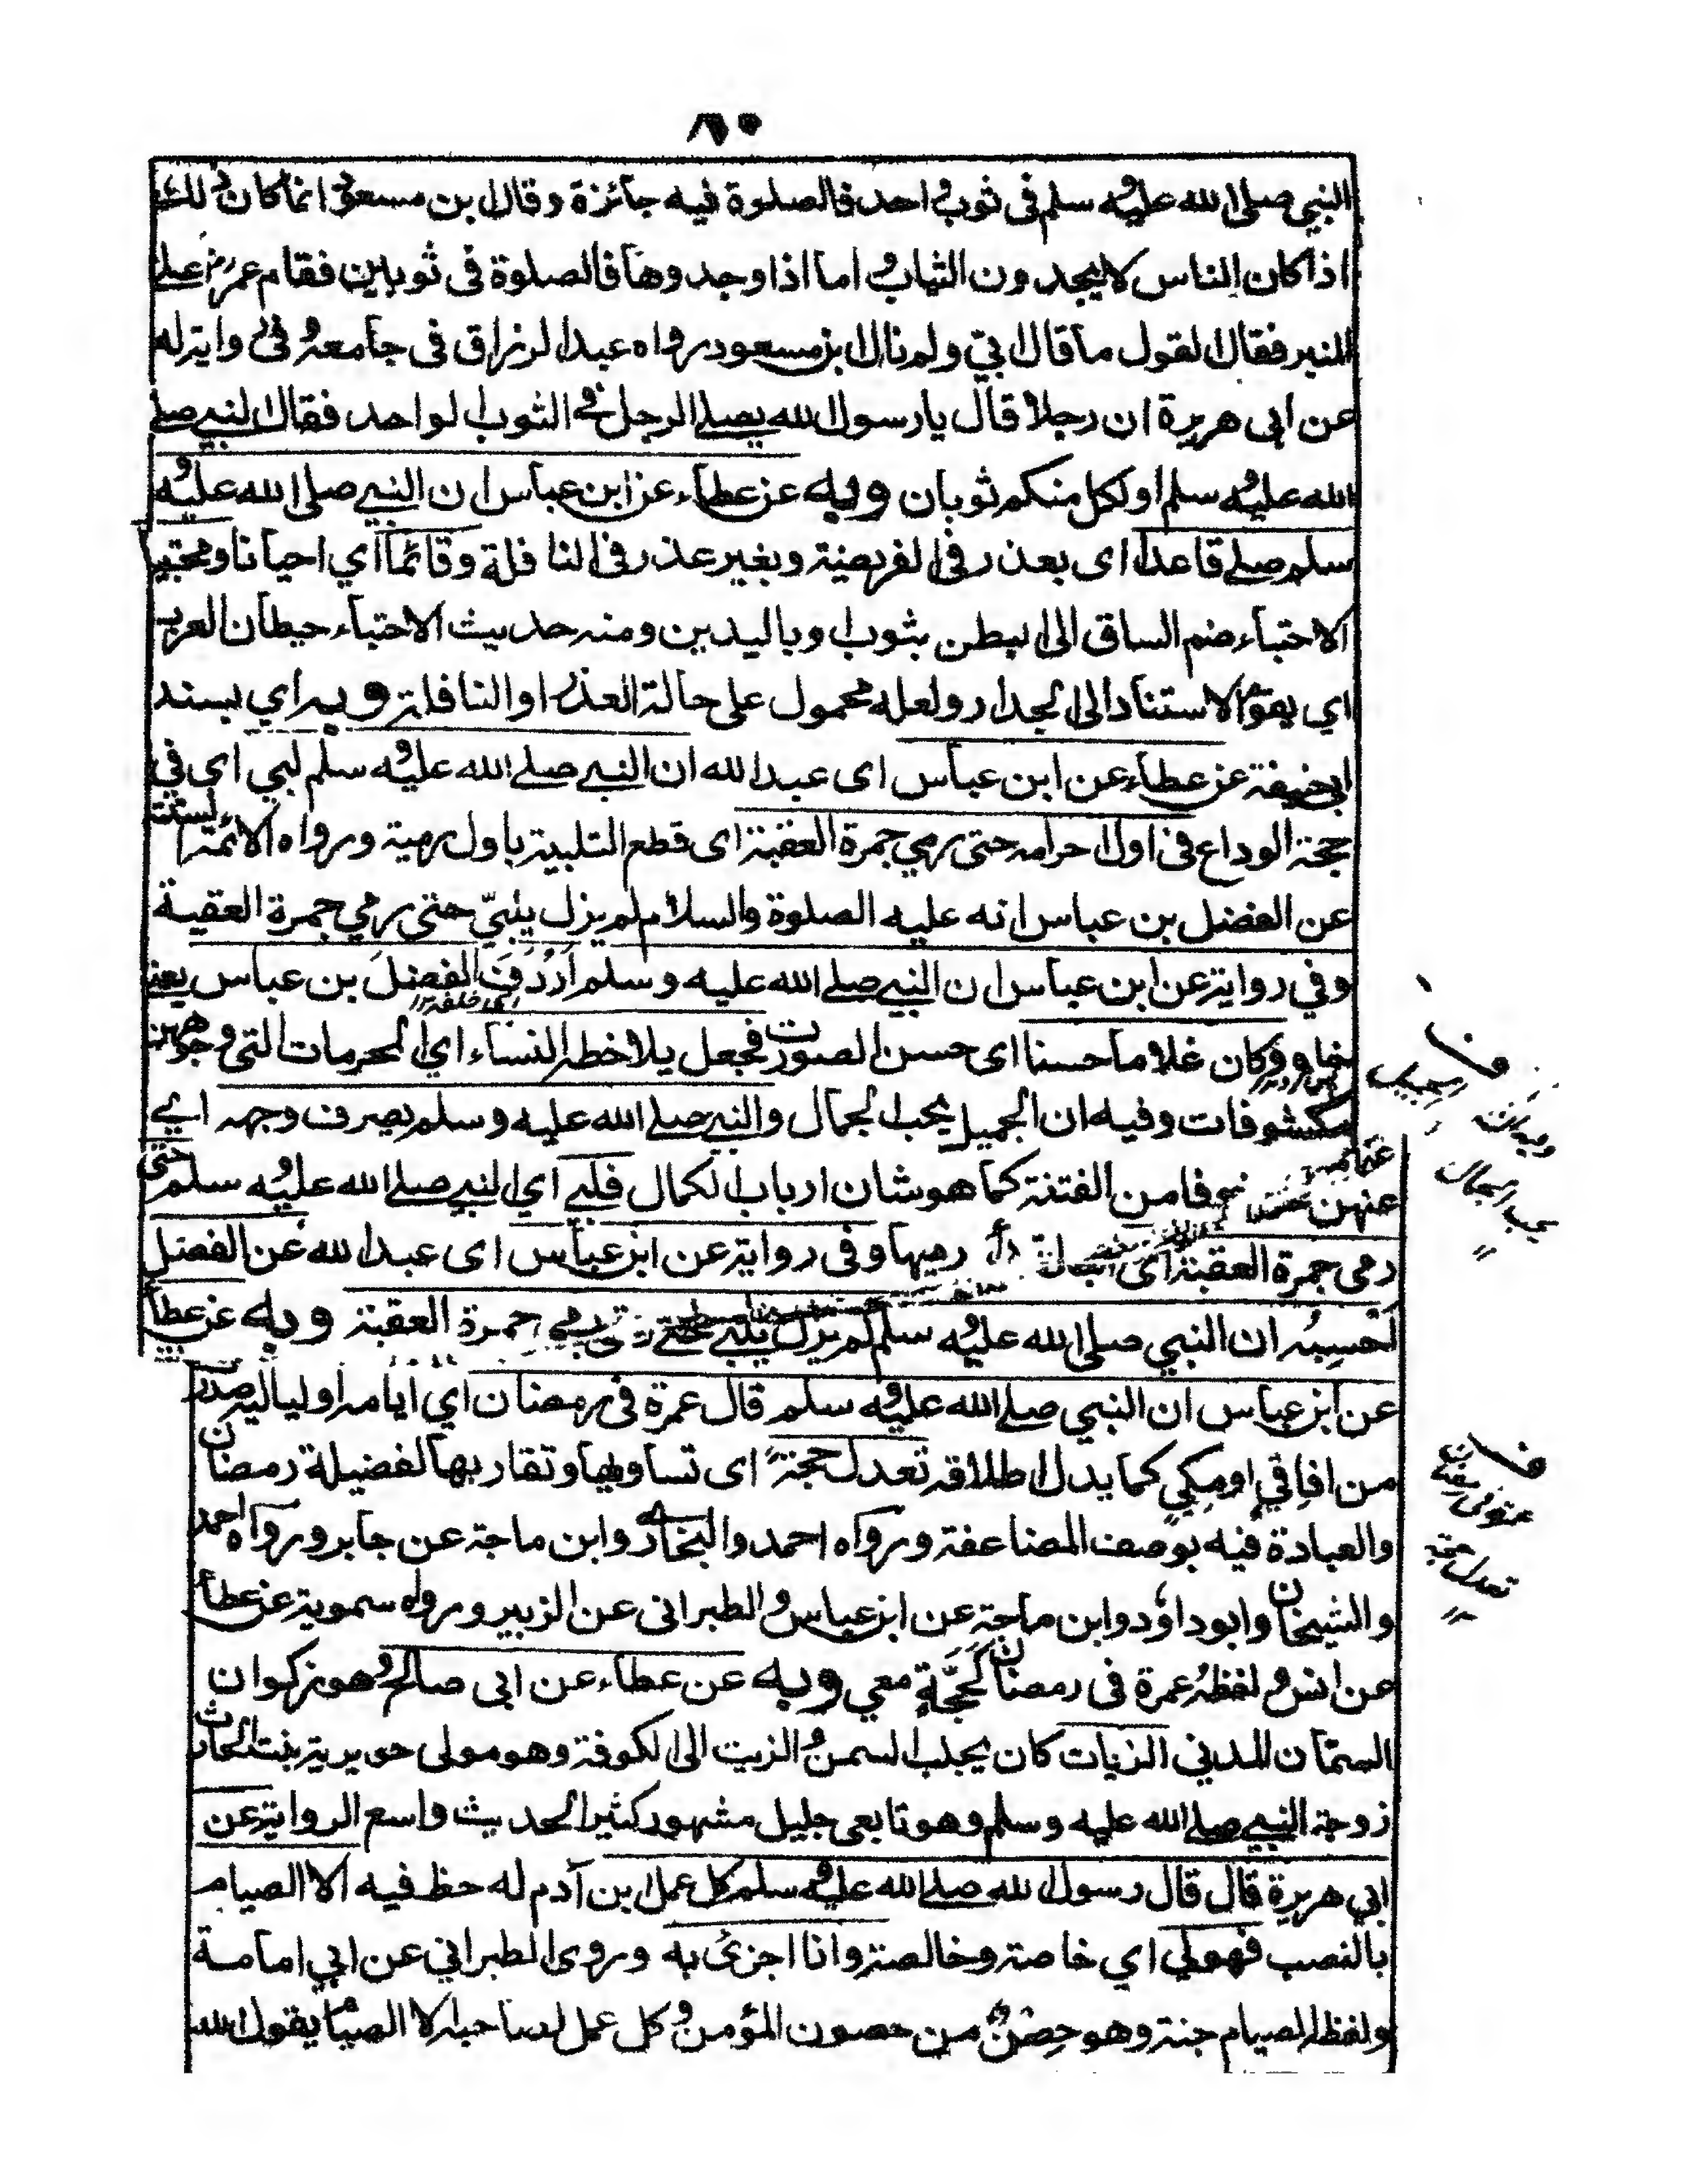 ٨٥
النبي صلى الله عليه وسلم فى ثوب واحد فالصلوة فيه جائزة وقال بن مسعود انما كان ذلك
اذا كان الناس لا يجدون الثياب واما اذا وجدوها فالصلوة فى ثوبين فقام عمر رض على
المنبر فقال القول ما قال ابيّ ولم نال ابن مسعود رواه عبد الرزاق فى جامعه وفى رواية له
عن ابى هريرة ان رجلا قال يا رسول الله يصلے الرجل في الثوب الواحد فقال النبي صلے
الله عليه وسلم اولكل منكم ثوبان وبه عن عطاء عن ابن عباس ان النبي صلى الله عليه و
سلم صلے قاعدا اى بعذر فى الفريضة وبغير عذر فى النافلة وقائما اي احيانا ومحتبيا
الاحتباء ضم الساق الى البطن بثوب او باليدين ومنه حديث الاحتباء حيطان العرب
اي يقوم الاستناد الى الجدار ولعله محمول على حالة العذر او النافلة وبه اي بسند
ابى حنيفة عن عطاء عن ابن عباس اى عبد الله ان النبي صلے الله عليه وسلم لبي اي في
حجة الوداع فى اول احرامه حتى رمي جمرة العقبة اى قطع التلبية باول رمية ورواه الائمة الستة
عن الفضل بن عباس انه عليه الصلوة والسلام لم يزل يلبيّ حتى رمي جمرة العقبة
وفي رواية عن ابن عباس ان النبي صلے الله عليه وسلم اَرْدَفَ الفضل بن عباس يعنے
اى خلفه
وكان غلاما حسنا اى حسن الصورت فجعل يلاحظ النساء اي المحرمات التي وجوههن
مكشوفات وفيه ان الجميل يحب الجمال والنبي صلے الله عليه وسلم يصرف وجهه اي
عنهن خوفا من الفتنة كما هو شان ارباب الكمال فلبے اي النبي صلے الله عليه وسلم حتى
رمى جمرة العقبة اى رميها وفى رواية عن ابن عباس اى عبد الله عن الفضل
اخيه ان النبي صلى الله عليه وسلم لم يزل يلبے حتے رمي جمرة العقبة وبه عن عطاء
عن ابن عباس ان النبي صلے الله عليه وسلم قال عمرة فى رمضان اي ايامه او لياليه صدر
من افاقي او مكي كما يدل اطلاقه تعدل حجة اى تساويها وتقاربها لفضيلة رمضان
والعبادة فيه بوصف المضاعفة ورواه احمد والبخارى وابن ماجة عن جابر ورواه احمد
والشيخان وابو داؤد وابن ماجة عن ابن عباس والطبرانى عن الزبير ورواه سموية عن عطاء
عن انس ولفظه عمرة فى رمضان كَحَجَّةٍ معي وبه عن عطاء عن ابى صالح وهو ذكوان
السمّان المدني الزيات كان يجلب السمن والزيت الى الكوفة وهو مولى جويرية بنت الحارث
زوجة النبي صلے الله عليه وسلم وهو تابعى جليل مشهور كثير الحديث واسع الرواية عن
ابي هريرة قال قال رسول الله صلے الله عليه وسلم كل عمل ابن آدم له حظ فيه الا الصيام
بالنصب فهو لي اي خاصة وخالصة وانا اجزئ به وروى الطبراني عن ابي امامة
ولفظه الصيام جنة وهو حِصْنٌ من حصون المؤمن وكل عمل لصاحبه الا الصيام يقول الله
يحب الجمال
عمرة في رمضان
تعدل حجة